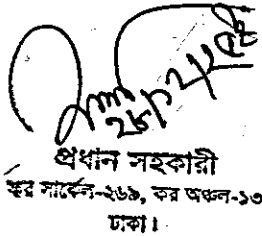 প্রধান সহকারী
কর সার্কেল-২৬৯, কর অঞ্চল-১৩
ঢাকা।